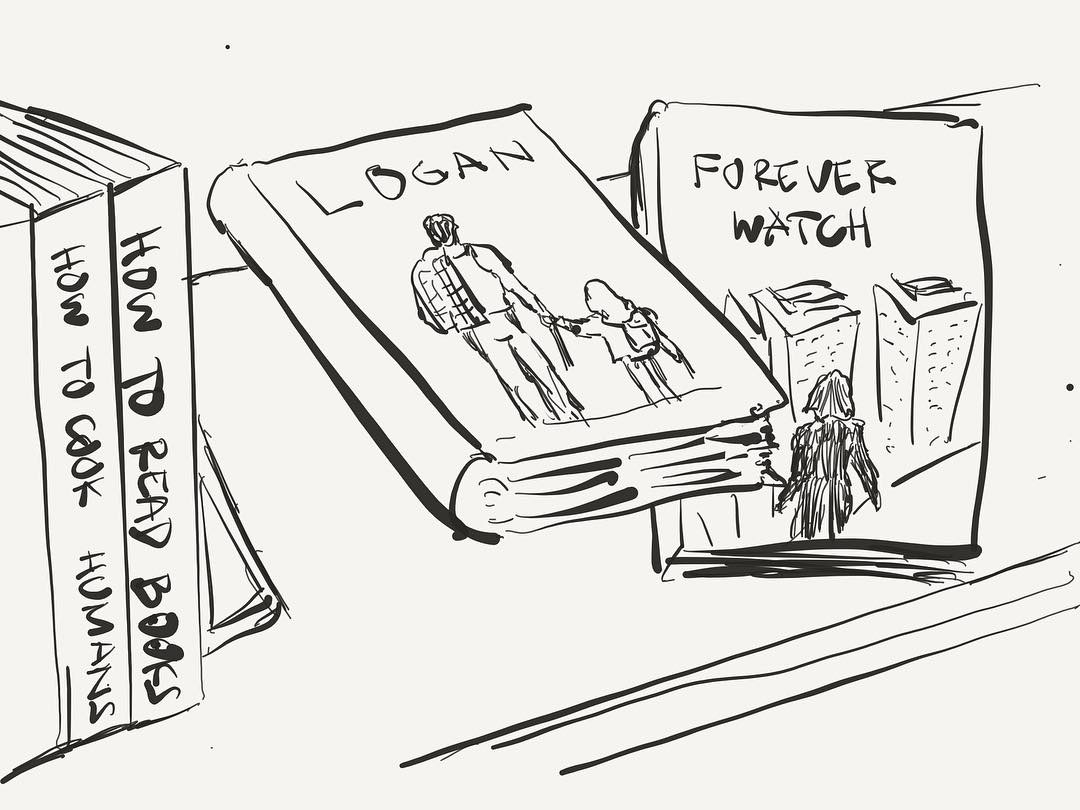 HOW TO COOK HUMANS
HOW TO READ BOOKS
LOGAN
FOREVER
WATCH